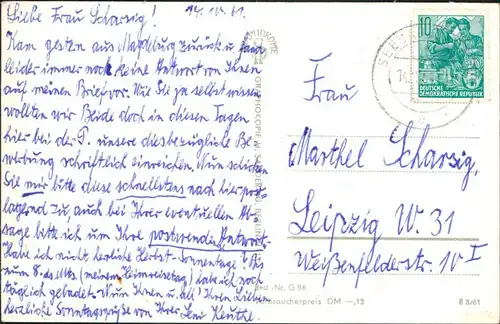 Liebe Frau Scharsig!
14.10.61.
Kam gestern aus Magdeburg zurück u. fand
leider immer noch keine Antwort von Ihnen
auf meinen Brief vor. Wie Sie ja selbst wissen,
wollten wir Beide doch in diesen Tagen
hier bei der P. unsere diesbezügliche Be-
werbung schriftlich einreichen. Nun schicken
Sie mir bitte diese schnellstens nach hier post-
lagernd zu, auch bei Ihrer eventuellen Ab-
sage bitte ich um Ihre postwendende Antwort.
Habe ich nicht herliche Herbst-Sonnentage? Bis
zum 8. ds. Mts. (meinem Heimreisetag) hab ich noch
täglich gebadet. Nun Ihnen u. all Ihren Lieben
herzliche Sonntagsgrüße von Ihrer
10
DEUTSCHE
DEMOKRATISCHE REPUBLIK
Frau
Marthel Scharsig,
Leipzig W. 31
Weißenfelderstr. 10 I
Best.-Nr. G 96
Verbraucherpreis DM —,15
B 8/61